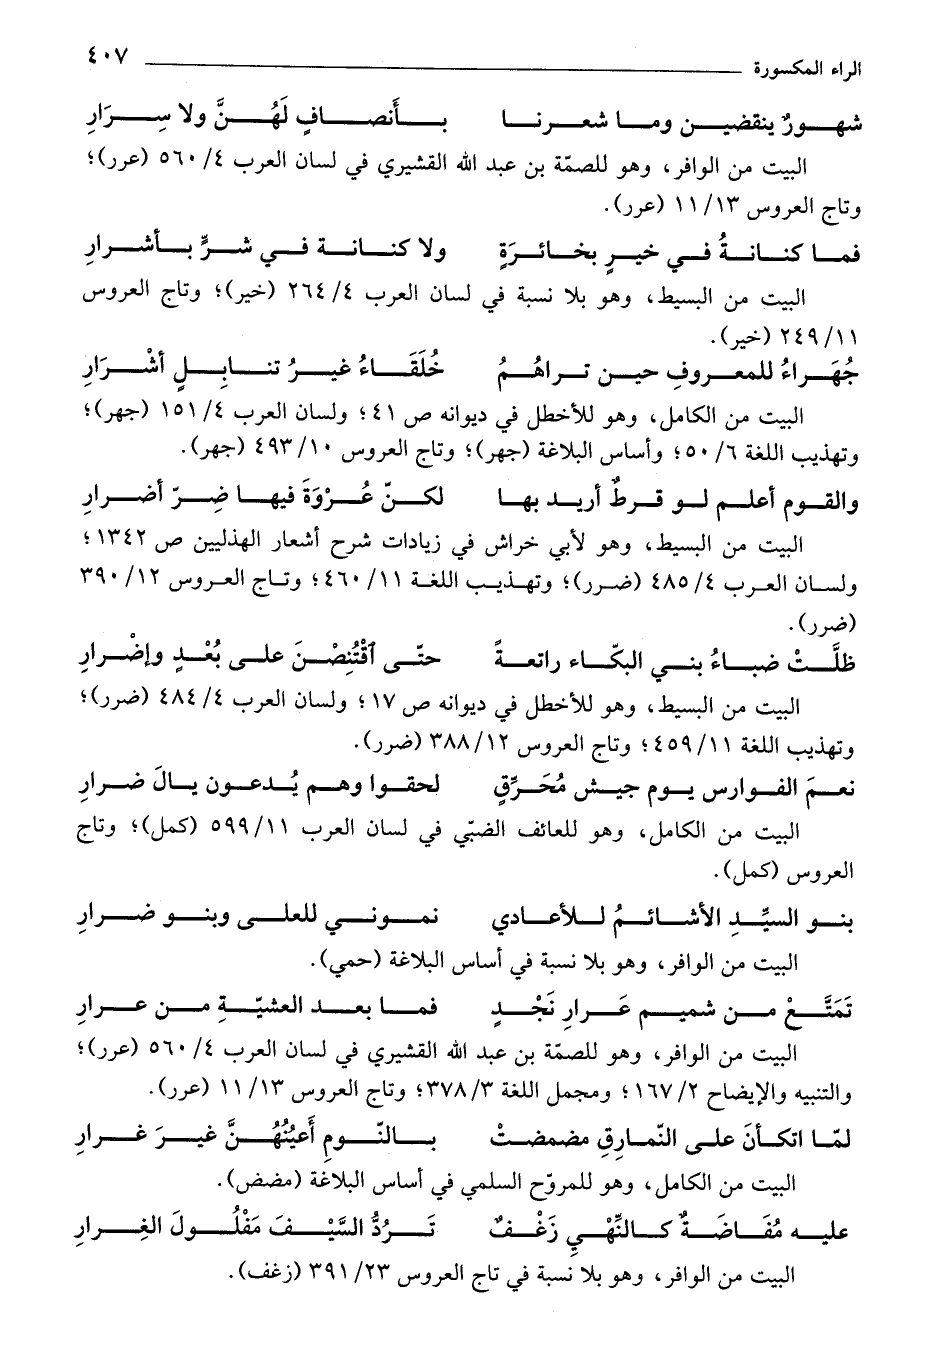 الراء المكسورة ٤٠٧
شهورٌ ينقضين وما شعرنا بأَنصافٍ لَهُنَّ ولا سِرَارِ
البيت من الوافر، وهو للصمّة بن عبد الله القشيري في لسان العرب ٤/ ٥٦٠ (عرر)؛
وتاج العروس ١٣/ ١١ (عرر).
فما كنانةُ في خيرٍ بخائرَةٍ ولا كنانة في شرٍّ بأشرارِ
البيت من البسيط، وهو بلا نسبة في لسان العرب ٤/ ٢٦٤ (خير)؛ وتاج العروس
١١/ ٢٤٩ (خير).
جُهَراءُ للمعروفِ حين تراهُمُ خُلَقَاءُ غيرُ تنابِلٍ أشْرَارِ
البيت من الكامل، وهو للأخطل في ديوانه ص ٤١؛ ولسان العرب ٤/ ١٥١ (جهر)؛
وتهذيب اللغة ٦/ ٥٠؛ وأساس البلاغة (جهر)؛ وتاج العروس ١٠/ ٤٩٣ (جهر).
والقوم أعلم لو قرطٌ أريد بها لكنّ عُرْوَةَ فيها ضِرّ أضرارِ
البيت من البسيط، وهو لأبي خراش في زيادات شرح أشعار الهذليين ص ١٣٤٢؛
ولسان العرب ٤/ ٤٨٥ (ضرر)؛ وتهذيب اللغة ١١/ ٤٦٠؛ وتاج العروس ١٢/ ٣٩٠
(ضرر).
ظلَّتْ ضباءُ بني البكّاء راتعةً حتّى ٱقْتُنِصْنَ على بُعْدٍ وإضْرارِ
البيت من البسيط، وهو للأخطل في ديوانه ص ١٧؛ ولسان العرب ٤/ ٤٨٤ (ضرر)؛
وتهذيب اللغة ١١/ ٤٥٩؛ وتاج العروس ١٢/ ٣٨٨ (ضرر).
نعمَ الفوارس يوم جيش مُحَرِّقٍ لحقوا وهم يُدعون يالَ ضرارِ
البيت من الكامل، وهو للعائف الضبّي في لسان العرب ١١/ ٥٩٩ (كمل)؛ وتاج
العروس (كمل).
بنو السيِّدِ الأشائمُ للأعادي نموني للعلى وبنو ضرارِ
البيت من الوافر، وهو بلا نسبة في أساس البلاغة (حمي).
تَمَتَّعْ من شميم عَرارِ نَجْدٍ فما بعد العشيّةِ من عرارِ
البيت من الوافر، وهو للصمّة بن عبد الله القشيري في لسان العرب ٤/ ٥٦٠ (عرر)؛
والتنبيه والإيضاح ٢/ ١٦٧؛ ومجمل اللغة ٣/ ٣٧٨؛ وتاج العروس ١٣/ ١١ (عرر).
لمّا اتكأنَ على النّمارقِ مضمضتْ بالنّومِ أَعيُنُهُنَّ غيرَ غرارِ
البيت من الكامل، وهو للمروّح السلمي في أساس البلاغة (مضض).
عليه مُفَاضَةٌ كالنِّهْيِ زَغْفٌ تَرُدُّ السَّيْفَ مَفْلُولَ الغِرارِ
البيت من الوافر، وهو بلا نسبة في تاج العروس ٢٣/ ٣٩١ (زغف).